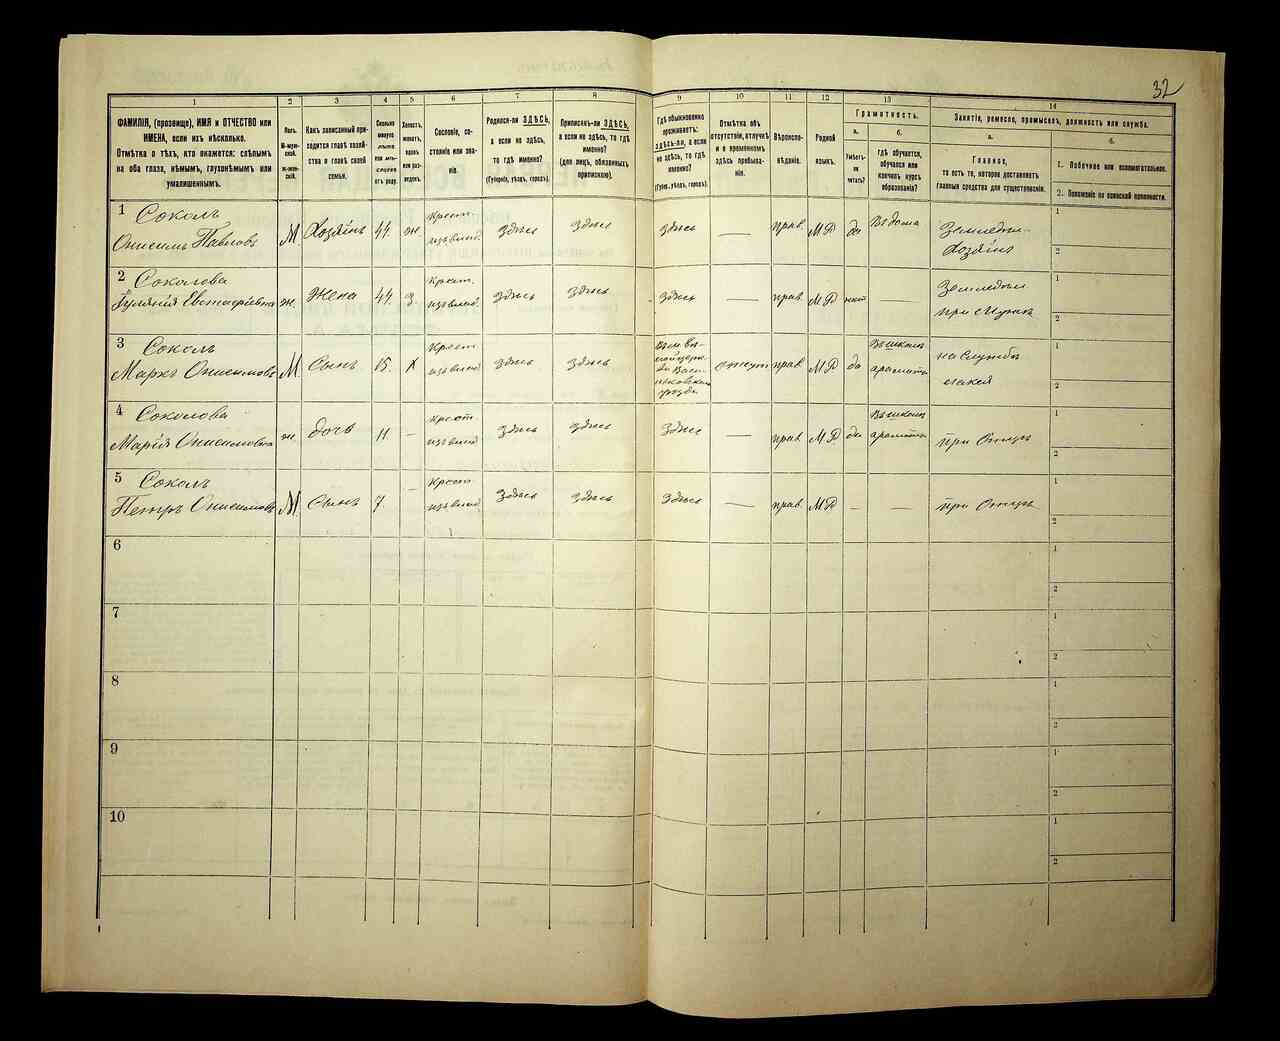 32
1 2 3 4 5 6 7 8 9 10 11 12 13 14
ФАМИЛІЯ, (прозвище), ИМЯ и ОТЧЕСТВО или
ИМЕНА, если ихъ нѣсколько.
Отмѣтка о тѣхъ, кто окажется: слѣпымъ
на оба глаза, нѣмымъ, глухонѣмымъ или
умалишеннымъ.
Полъ.
М-муж-
ской.
Ж-жен-
скій.
Какъ записанный при-
ходится главѣ хозяй-
ства и главѣ своей
семьи.
Сколько
минуло
лѣтъ
или мѣ-
сяцевъ
отъ роду.
Холостъ,
женатъ,
вдовъ
или раз-
веденъ.
Сословіе, со-
стояніе или зва-
ніе.
Родился-ли ЗДѢСЬ,
а если не здѣсь,
то гдѣ именно?
(Губернія, уѣздъ, городъ).
Приписанъ-ли ЗДѢСЬ,
а если не здѣсь, то гдѣ
именно?
(для лицъ, обязанныхъ
припискою).
Гдѣ обыкновенно
проживаетъ:
здѣсь-ли, а если
не здѣсь, то гдѣ
именно?
(Губерн., уѣздъ, городъ).
Отмѣтка объ
отсутствіи, отлучкѣ
и о временномъ
здѣсь пребыва-
ніи.
Вѣроиспо-
вѣданіе.
Родной
языкъ.
Грамотность.
а.
Умѣетъ-
ли
читать?
б.
гдѣ обучается,
обучался или
кончилъ курсъ
образованія?
Занятіе, ремесло, промыселъ, должность или служба.
а.
Главное,
то есть то, которое доставляетъ
главныя средства для существованія.
б.
1. Побочное или вспомогательное.
2. Положеніе по воинской повинности.
1 Соколъ
Онисимъ Павловъ М Хозяинъ 44. ж Крест. изъ влад. здѣсь здѣсь здѣсь — прав. МР да Въ дома Земледѣл. Хозяинъ
1
2
2 Соколова
Евстафіевна ж. Жена 44. з. Крест. изъ влад. здѣсь здѣсь здѣсь — прав МР нѣт Земледѣл при Мужѣ
1
2
3 Соколъ
Маркъ Онисимовъ М Сынъ 15. Х Крест изъ влад здѣсь здѣсь уѣзда прав МР да Въ школѣ грамоты на службѣ лакей
1
2
4 Соколова
Марія Онисимовна ж дочь 11 - Крест изъ влад здѣсь здѣсь здѣсь — прав МР да Въ школѣ грамоты при Отцѣ
1
2
5 Соколъ
Петръ Онисимовъ М Сынъ 7. - Крест изъ влад здѣсь здѣсь здѣсь — прав. МР - — при Отцѣ
1
2
6
1
2
7
1
2
8
1
2
9
1
2
10
1
2